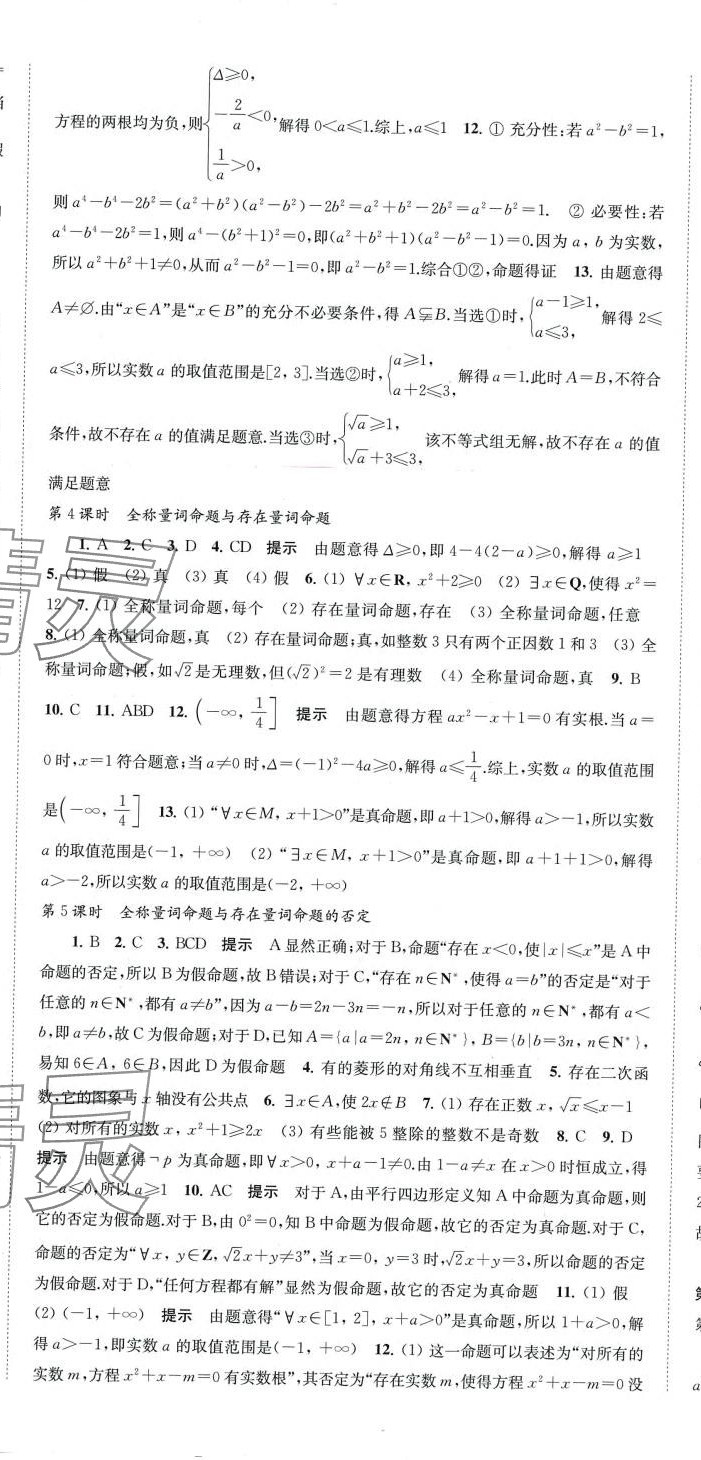 方程的两根均为负,则{Δ≥0, -2/a<0, 1/a>0, 解得 0<a≤1.综上,a≤1 12. ① 充分性:若 a²-b²=1,
则 a⁴-b⁴-2b²=(a²+b²)(a²-b²)-2b²=a²+b²-2b²=a²-b²=1. ② 必要性:若
a⁴-b⁴-2b²=1,则 a⁴-(b²+1)²=0,即(a²+b²+1)(a²-b²-1)=0.因为 a, b 为实数,
所以 a²+b²+1≠0,从而 a²-b²-1=0,即 a²-b²=1.综合①②,命题得证 13. 由题意得
A≠∅.由“x∈A”是“x∈B”的充分不必要条件,得 A⫋B.当选①时,{a-1≥1, a≤3, 解得 2≤
a≤3,所以实数 a 的取值范围是[2, 3].当选②时,{a≥1, a+2≤3, 解得 a=1.此时 A=B,不符合
条件,故不存在 a 的值满足题意.当选③时,{√a≥1, √a+3≤3, 该不等式组无解,故不存在 a 的值
满足题意
第 4 课时 全称量词命题与存在量词命题
1. A 2. C 3. D 4. CD 提示 由题意得 Δ≥0,即 4-4(2-a)≥0,解得 a≥1
5. (1) 假 (2) 真 (3) 真 (4) 假 6. (1) ∀x∈R, x²+2≥0 (2) ∃x∈Q,使得 x²=
12 7. (1) 全称量词命题,每个 (2) 存在量词命题,存在 (3) 全称量词命题,任意
8. (1) 全称量词命题,真 (2) 存在量词命题;真,如整数 3 只有两个正因数 1 和 3 (3) 全
称量词命题;假,如√2是无理数,但(√2)²=2 是有理数 (4) 全称量词命题,真 9. B
10. C 11. ABD 12. (-∞, 1/4] 提示 由题意得方程 ax²-x+1=0 有实根.当 a=
0 时,x=1 符合题意;当 a≠0 时,Δ=(-1)²-4a≥0,解得 a≤1/4.综上,实数 a 的取值范围
是(-∞, 1/4] 13. (1) “∀x∈M, x+1>0”是真命题,即 a+1>0,解得 a>-1,所以实数
a 的取值范围是(-1, +∞) (2) “∃x∈M, x+1>0”是真命题,即 a+1+1>0,解得
a>-2,所以实数 a 的取值范围是(-2, +∞)
第 5 课时 全称量词命题与存在量词命题的否定
1. B 2. C 3. BCD 提示 A 显然正确;对于 B,命题“存在 x<0,使|x|≤x”是 A 中
命题的否定,所以 B 为假命题,故 B 错误;对于 C,“存在 n∈N*,使得 a=b”的否定是“对于
任意的 n∈N*,都有 a≠b”,因为 a-b=2n-3n=-n,所以对于任意的 n∈N*,都有 a<
b,即 a≠b,故 C 为假命题;对于 D,已知 A={a|a=2n, n∈N*}, B={b|b=3n, n∈N*},
易知 6∈A, 6∈B,因此 D 为假命题 4. 有的菱形的对角线不互相垂直 5. 存在二次函
数,它的图象与 x 轴没有公共点 6. ∃x∈A,使 2x∉B 7. (1) 存在正数 x, √x≤x-1
(2) 对所有的实数 x, x²+1≥2x (3) 有些能被 5 整除的整数不是奇数 8. C 9. D
提示 由题意得¬p 为真命题,即∀x>0, x+a-1≠0.由 1-a≠x 在 x>0 时恒成立,得
1-a≤0,所以 a≥1 10. AC 提示 对于 A,由平行四边形定义知 A 中命题为真命题,则
它的否定为假命题.对于 B,由 0²=0,知 B 中命题为假命题,故它的否定为真命题.对于 C,
命题的否定为“∀x, y∈Z, √2x+y≠3”,当 x=0, y=3 时,√2x+y=3,所以命题的否定
为假命题.对于 D,“任何方程都有解”显然为假命题,故它的否定为真命题 11. (1) 假
(2) (-1, +∞) 提示 由题意得“∀x∈[1, 2], x+a>0”是真命题,所以 1+a>0,解
得 a>-1,即实数 a 的取值范围是(-1, +∞) 12. (1) 这一命题可以表述为“对所有的
实数 m,方程 x²+x-m=0 有实数根”,其否定为“存在实数 m,使得方程 x²+x-m=0 没
精灵
精灵